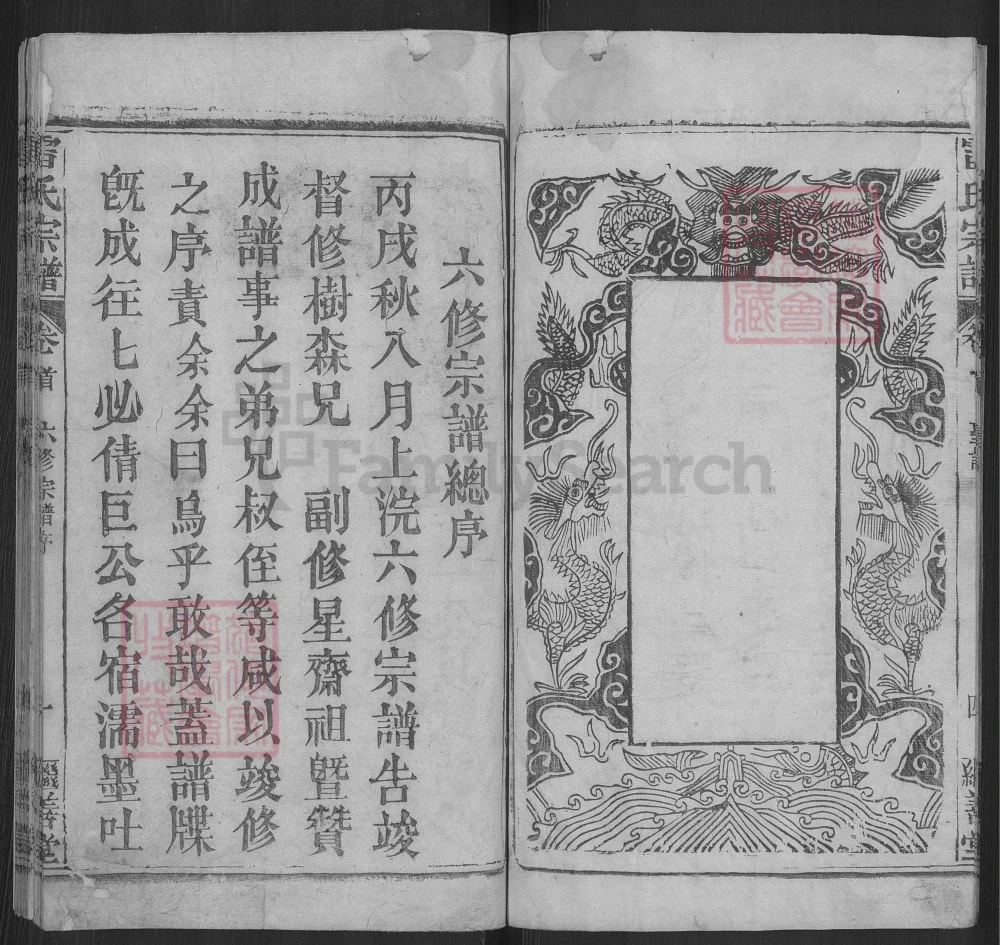 六修宗譜總序
丙戌秋八月上浣六修宗譜告竣
督修樹森兄　副修星齋祖曁贊
成譜事之弟兄叔侄等咸以竣修
之序責余余曰烏乎敢哉蓋譜牒
旣成徃匕必倩巨公名宿濡墨吐
雷氏宗譜
卷首
六修宗譜序
一
雷氏宗譜
四
FamilySearch